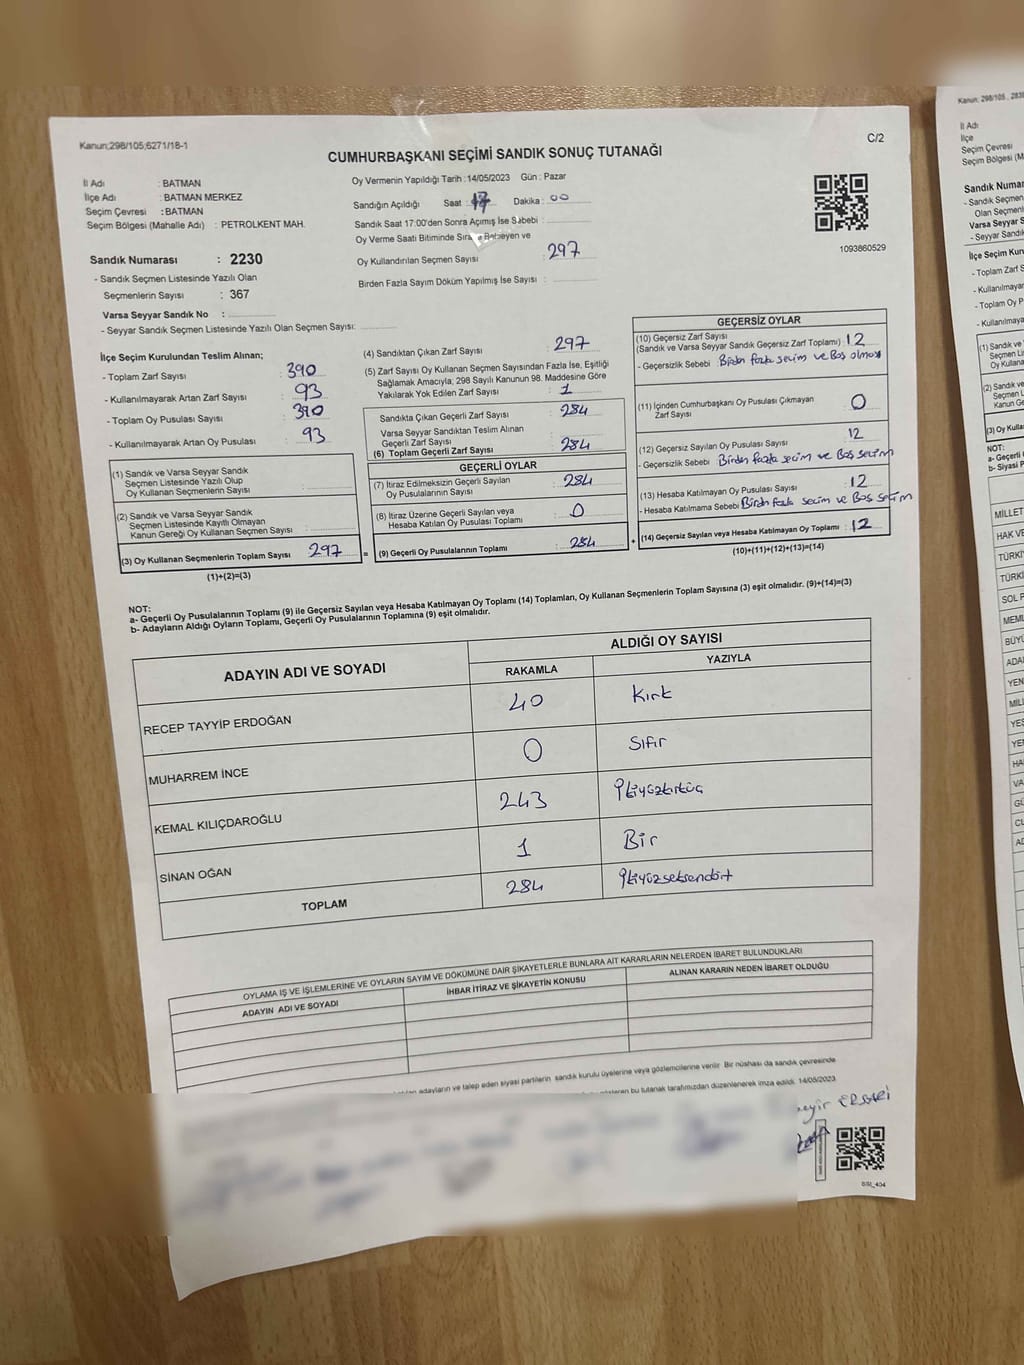 Kanun;298/105;6271/18-1
C/2
CUMHURBAŞKANI SEÇİMİ SANDIK SONUÇ TUTANAĞI
İl Adı : BATMAN
İlçe Adı : BATMAN MERKEZ
Seçim Çevresi : BATMAN
Seçim Bölgesi (Mahalle Adı) : PETROLKENT MAH.
Oy Vermenin Yapıldığı Tarih : 14/05/2023 Gün : Pazar
Sandığın Açıldığı Saat : 17 Dakika : 00
Sandık Saat 17:00'den Sonra Açımış İse Sebebi :
Oy Verme Saati Bitiminde Sıra Bekleyen ve
Oy Kullandırılan Seçmen Sayısı : 297
Birden Fazla Sayım Döküm Yapılmış İse Sayısı :
1093860529
Sandık Numarası : 2230
- Sandık Seçmen Listesinde Yazılı Olan
Seçmenlerin Sayısı : 367
Varsa Seyyar Sandık No :
- Seyyar Sandık Seçmen Listesinde Yazılı Olan Seçmen Sayısı:
İlçe Seçim Kurulundan Teslim Alınan;
- Toplam Zarf Sayısı : 390
- Kullanılmayarak Artan Zarf Sayısı : 93
- Toplam Oy Pusulası Sayısı : 390
- Kullanılmayarak Artan Oy Pusulası : 93
(1) Sandık ve Varsa Seyyar Sandık
Seçmen Listesinde Yazılı Olup
Oy Kullanan Seçmenlerin Sayısı
(2) Sandık ve Varsa Seyyar Sandık
Seçmen Listesinde Kayıtlı Olmayan
Kanun Gereği Oy Kullanan Seçmen Sayısı
(3) Oy Kullanan Seçmenlerin Toplam Sayısı 297 =
(1)+(2)=(3)
(4) Sandıktan Çıkan Zarf Sayısı : 297
(5) Zarf Sayısı Oy Kullanan Seçmen Sayısından Fazla İse, Eşitliği
Sağlamak Amacıyla, 298 Sayılı Kanunun 98. Maddesine Göre
Yakılarak Yok Edilen Zarf Sayısı : 1
Sandıkta Çıkan Geçerli Zarf Sayısı : 284
Varsa Seyyar Sandıktan Teslim Alınan
Geçerli Zarf Sayısı
(6) Toplam Geçerli Zarf Sayısı : 284
GEÇERLİ OYLAR
(7) İtiraz Edilmeksizin Geçerli Sayılan
Oy Pusulalarının Sayısı : 284
(8) İtiraz Üzerine Geçerli Sayılan veya
Hesaba Katılan Oy Pusulası Toplamı : 0
(9) Geçerli Oy Pusulalarının Toplamı : 284 +
GEÇERSİZ OYLAR
(10) Geçersiz Zarf Sayısı
(Sandık ve Varsa Seyyar Sandık Geçersiz Zarf Toplamı) : 12
- Geçersizlik Sebebi Birden fazla seçim ve Boş olması
(11) İçinden Cumhurbaşkanı Oy Pusulası Çıkmayan
Zarf Sayısı : 0
(12) Geçersiz Sayılan Oy Pusulası Sayısı : 12
- Geçersizlik Sebebi Birden fazla seçim ve Boş seçim
(13) Hesaba Katılmayan Oy Pusulası Sayısı : 12
- Hesaba Katılmama Sebebi Birden fazla seçim ve Boş seçim
(14) Geçersiz Sayılan veya Hesaba Katılmayan Oy Toplamı : 12
(10)+(11)+(12)+(13)=(14)
NOT:
a- Geçerli Oy Pusulalarının Toplamı (9) ile Geçersiz Sayılan veya Hesaba Katılmayan Oy Toplamı (14) Toplamları, Oy Kullanan Seçmenlerin Toplam Sayısına (3) eşit olmalıdır. (9)+(14)=(3)
b- Adayların Aldığı Oyların Toplamı, Geçerli Oy Pusulalarının Toplamına (9) eşit olmalıdır.
ADAYIN ADI VE SOYADI
ALDIĞI OY SAYISI
RAKAMLA YAZIYLA
RECEP TAYYİP ERDOĞAN 40 Kırk
MUHARREM İNCE 0 Sıfır
KEMAL KILIÇDAROĞLU 243 İkiyüzkırküç
SİNAN OĞAN 1 Bir
TOPLAM 284 İkiyüzseksendört
OYLAMA İŞ VE İŞLEMLERİNE VE OYLARIN SAYIM VE DÖKÜMÜNE DAİR ŞİKAYETLERLE BUNLARA AİT KARARLARIN NELERDEN İBARET BULUNDUKLARI
ADAYIN ADI VE SOYADI
İHBAR İTİRAZ VE ŞİKAYETİN KONUSU
ALINAN KARARIN NEDEN İBARET OLDUĞU
adayların ve talep eden siyasi partilerin sandık kurulu üyelerine veya gözlemcilerine verilir. Bir nüshası da sandık çevresinde
bu tutanak tarafımızdan düzenlenerek imza edildi. 14/05/2023
Kanun; 298/105
İl Adı
İlçe
Seçim Çevresi
Seçim Bölgesi (M
Sandık Numarası
- Sandık Seçmen
Olan Seçmen
Varsa Seyyar
- Seyyar Sandı
İlçe Seçim Kuru
- Toplam Zarf S
- Kullanılmayar
- Toplam Oy P
- Kullanılmaya
(1) Sandık ve
Seçmen Li
Oy Kullana
(2) Sandık ve
Seçmen L
Kanun Ge
(3) Oy Kulla
NOT:
a- Geçerli
b- Siyasi P
MİLLET
HAK VE
TÜRKİ
TÜRKİ
SOL P
MEML
BÜYÜ
ADA
YEN